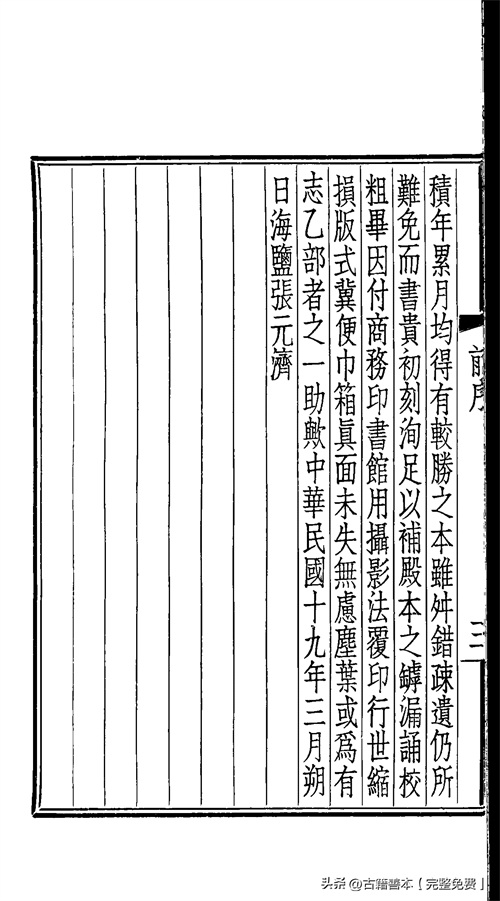 積年累月均得有較勝之本雖舛錯疎遺仍所
難免而書貴初刻洵足以補殿本之罅漏誦校
粗畢因付商務印書館用攝影法覆印行世縮
損版式冀便巾箱眞面未失無慮塵葉或爲有
志乙部者之一助歟中華民國十九年三月朔
日海鹽張元濟
前序
三
头条 @古籍善本【完整免费】